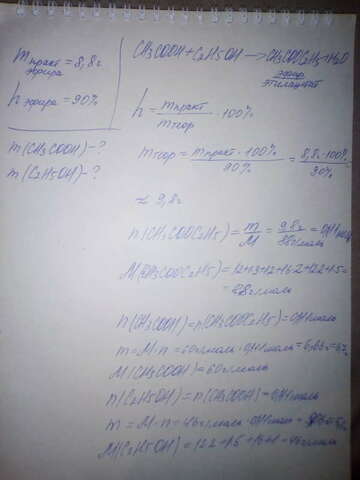 m практ эфира = 8,8г
h эфира = 90%
m(CH3COOH)-?
m(C2H5OH)-?
CH3COOH + C2H5OH → CH3COOC2H5 + H2O
эфир
этилацетат
h = mпракт / mтеор · 100%
mтеор = mпракт · 100% / 90% = 8,8г · 100% / 90%
≈ 9,8г
n(CH3COOC2H5) = m / M = 9,8г / 88г/моль = 0,11 моль
M(CH3COOC2H5) = 12+3+12+16·2+12·2+5 =
= 88г/моль
n(CH3COOH) = n(CH3COOC2H5) = 0,11моль
m = M · n = 60г/моль · 0,11моль = 6,6
M(CH3COOH) = 60г/моль
n(C2H5OH) = n(CH3COOH) = 0,11моль
m = M · n = 46г/моль · 0,11моль =
M(C2H5OH) = 12·2+1·5+16+1 = 46г/моль